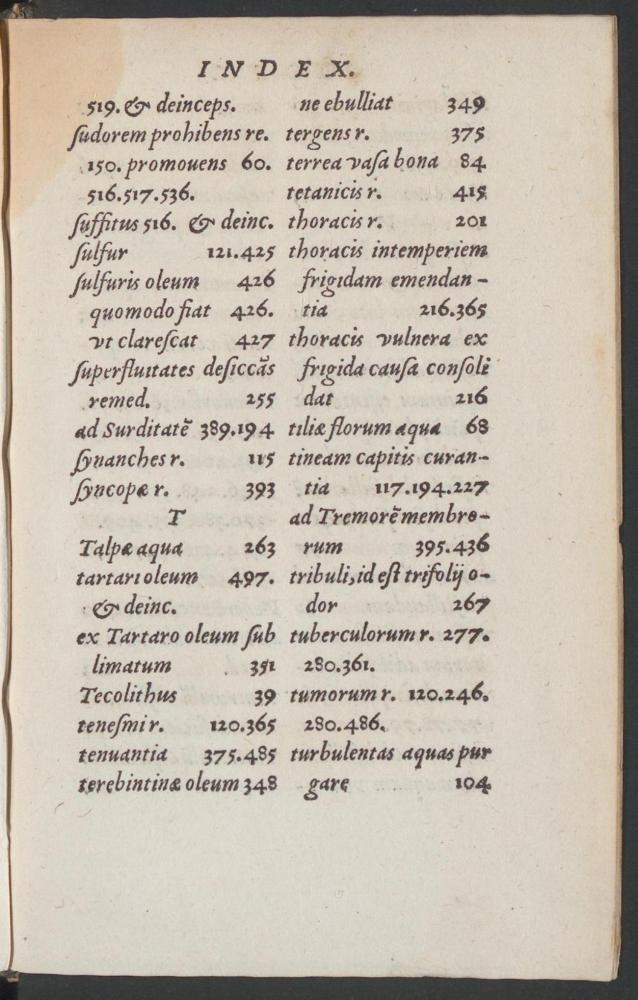 INDEX.
519. & deinceps.
ſudorem prohibens re.
150. promouens 60.
516.517.536.
ſuffitus 516. & deinc.
ſulfur 121.425
ſulfuris oleum 426
quomodo fiat 426.
vt clareſcat 427
ſuperfluitates deſiccās
remed. 255
ad Surditatē 389.194
ſynanches r. 115
ſyncopæ r. 393
T
Talpæ aqua 263
tartari oleum 497.
& deinc.
ex Tartaro oleum ſub
limatum 351
Tecolithus 39
teneſmi r. 120.365
tenuantia 375.485
terebintinæ oleum 348
ne ebulliat 349
tergens r. 375
terrea vaſa bona 84
tetanicis r. 415
thoracis r. 201
thoracis intemperiem
frigidam emendan-
tia 216.365
thoracis vulnera ex
frigida cauſa conſoli
dat 216
tiliæ florum aqua 68
tineam capitis curan-
tia 117.194.227
ad Tremorē membro-
rum 395.436
tribuli, id eſt trifolij o-
dor 267
tuberculorum r. 277.
280.361.
tumorum r. 120.246.
280.486.
turbulentas aquas pur
gare 104